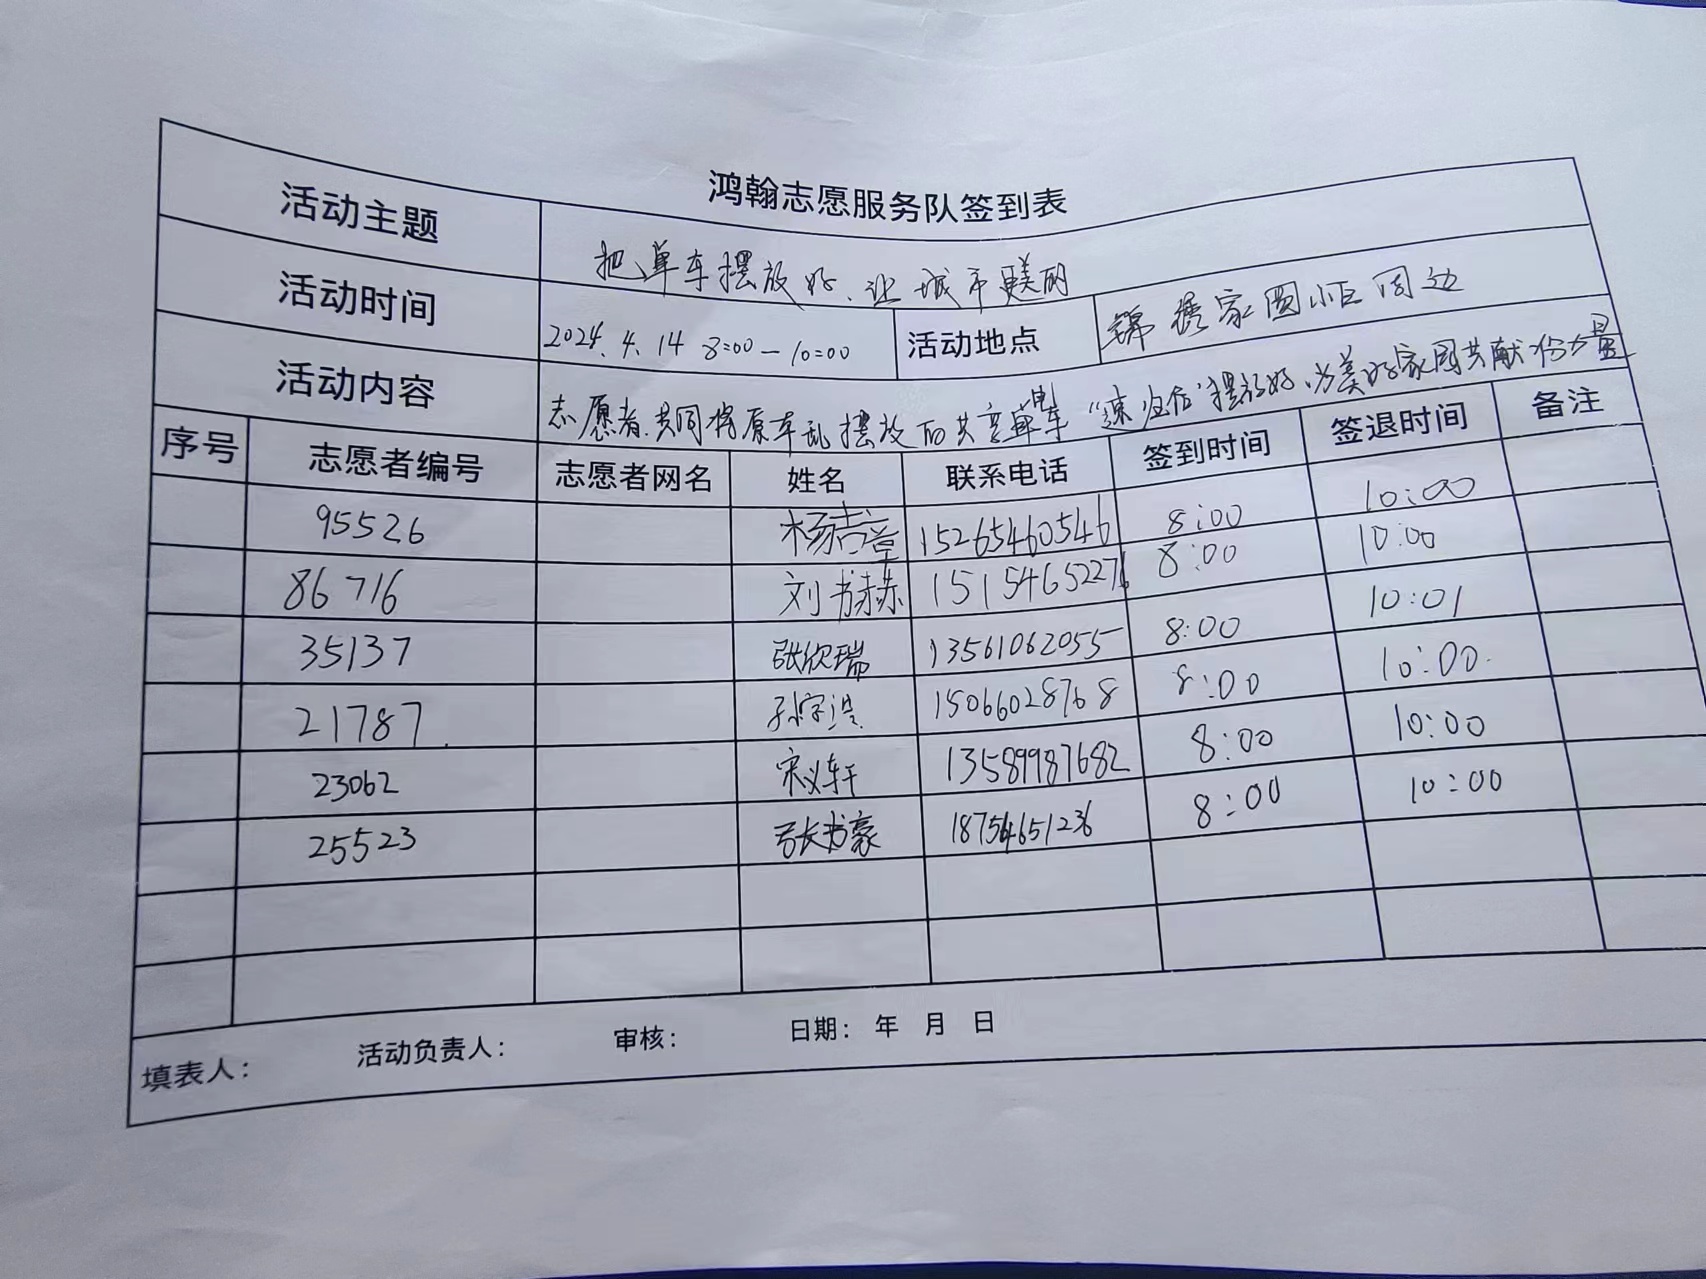 鸿翰志愿服务队签到表
活动主题 把单车摆放好、让城市更美丽
活动时间 2024.4.14 8:00—10:00 活动地点 锦绣家园小区周边
活动内容 志愿者共同将原本乱摆放的共享单车“归位”摆放好,为美好家园共献份力量
序号 志愿者编号 志愿者网名 姓名 联系电话 签到时间 签退时间 备注
95526 杨志章 15265460546 8:00 10:00
86716 刘书赫 15154652276 8:00 10:00
35137 张欣瑞 13561062055 8:00 10:01
21787 孙宇浩 15066028768 8:00 10:00
23062 宋义轩 13589987682 8:00 10:00
25523 张书豪 18754651236 8:00 10:00
填表人: 活动负责人: 审核: 日期: 年 月 日